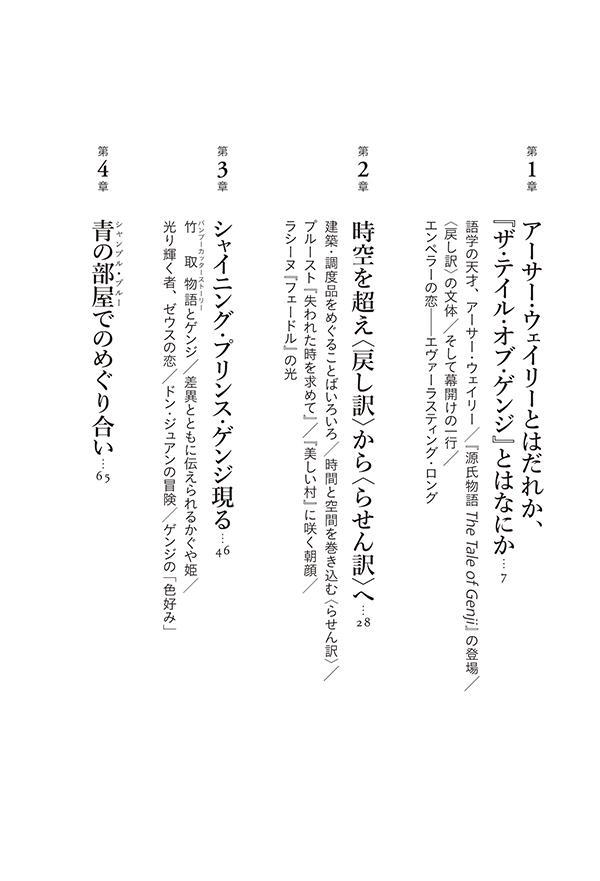 第1章
アーサー・ウェイリーとはだれか、
『ザ・テイル・オブ・ゲンジ』とはなにか…7
語学の天才、アーサー・ウェイリー／『源氏物語 The Tale of Genji』の登場／
〈戻し訳〉の文体／そして幕開けの一行／
エンペラーの恋――エヴァーラスティング・ロング
第2章
時空を超え〈戻し訳〉から〈らせん訳〉へ…28
建築・調度品をめぐることばいろいろ／時間と空間を巻き込む〈らせん訳〉／
プルースト『失われた時を求めて』／『美しい村』に咲く朝顔／
ラシーヌ『フェードル』の光
第3章
シャイニング・プリンス・ゲンジ現る…46
バンブーカッターストーリー
竹取物語とゲンジ／差異とともに伝えられるかぐや姫／
光り輝く者、ゼウスの恋／ドン・ジュアンの冒険／ゲンジの「色好み」
第4章
シャンブル・ブルー
青の部屋でのめぐり合い…65